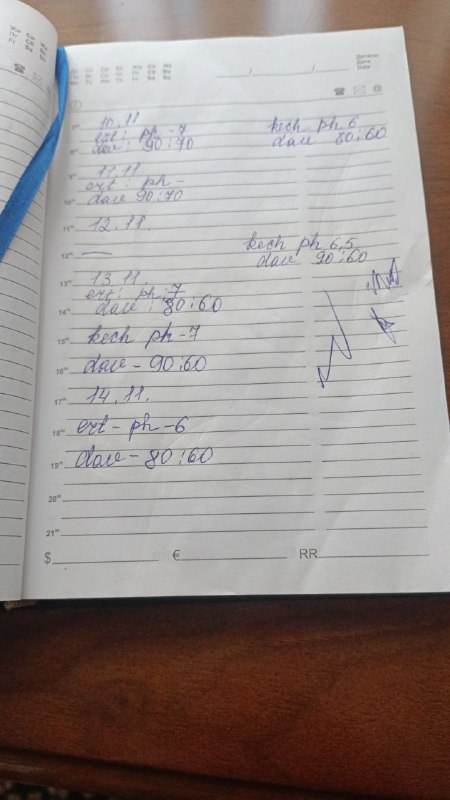 10.11
ert: ph - 7
dav: 90:70
kech ph 6
dave 80:60
11.11
ert: ph -
dave 90:70
12.11.
—
kech ph 6,5
dave 90:60
13.11
ert: ph: 7
dave: 80:60
kech ph-7
dave - 90:60
14.11.
ert - ph - 6
dave - 80:60
$
€
RR